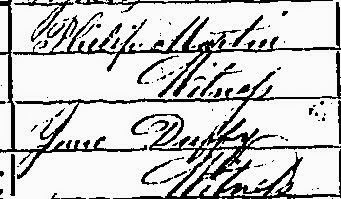 Philip Martin
Witness
Jane Duffy
Witness